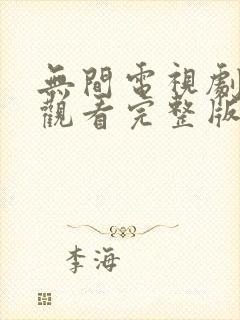 無間電視劇
觀看完整版
李海